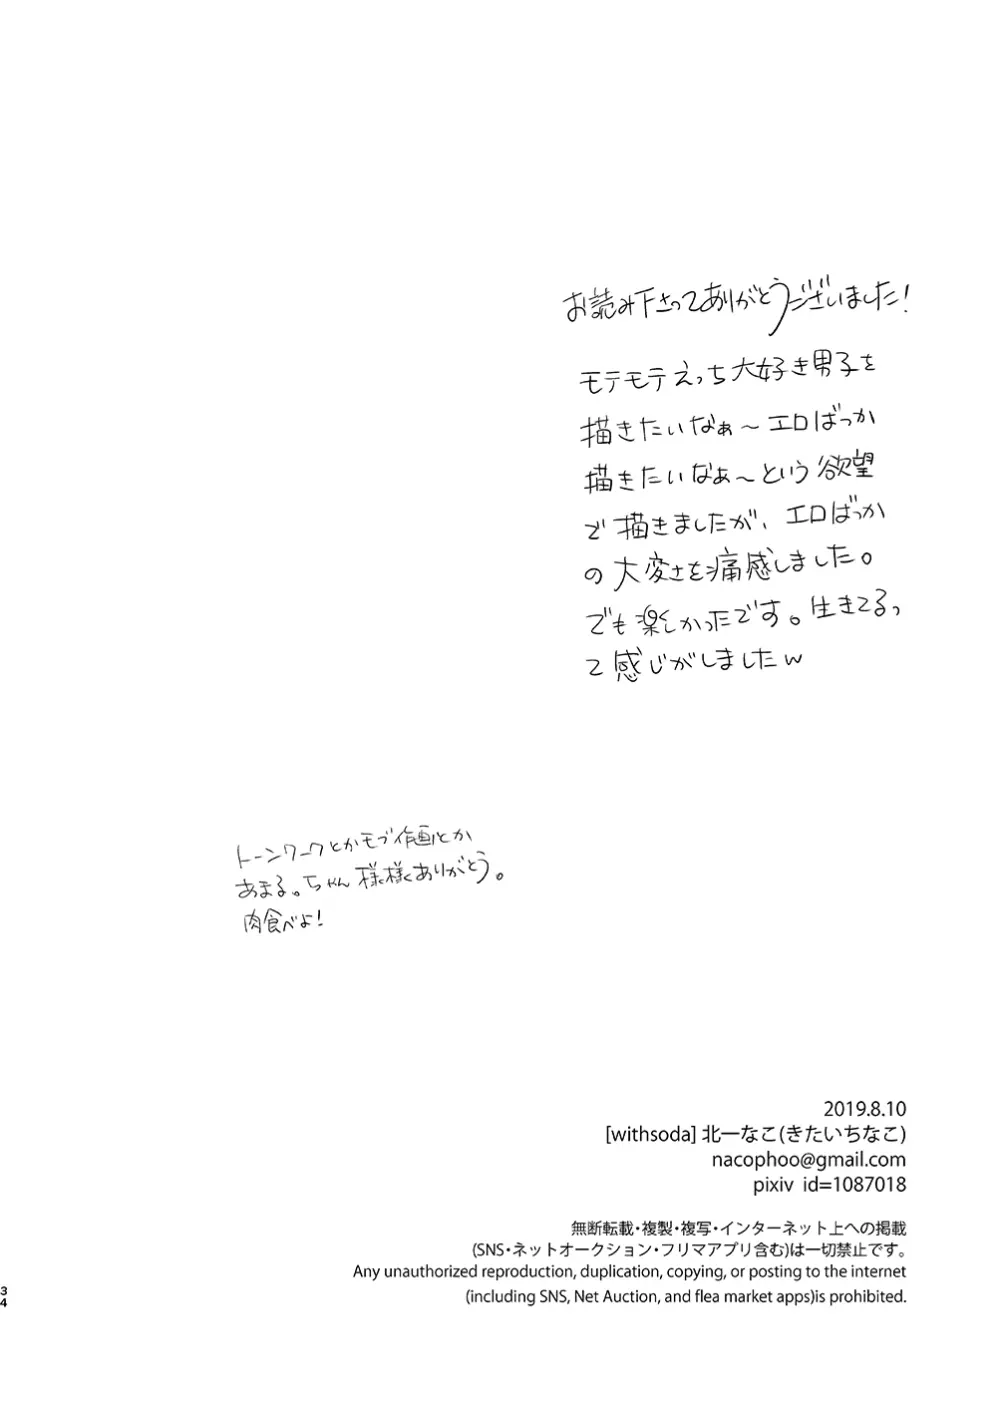 お読み下さってありがとうございました!
モテモテえっち大好き男子を
描きたいなぁ〜エロばっか
描きたいなぁ〜という欲望
で描きましたが、エロばっか
の大変さを痛感しました。
でも楽しかったです。生きてるっ
て感じがしましたw
トーンワークとかモブ作画とか
あまる。ちゃん様様ありがとう。
肉食べよ!
2019.8.10
[withsoda] 北一なこ(きたいちなこ)
nacophoo@gmail.com
pixiv id=1087018
無断転載・複製・複写・インターネット上への掲載
(SNS・ネットオークション・フリマアプリ含む)は一切禁止です。
Any unauthorized reproduction, duplication, copying, or posting to the internet
(including SNS, Net Auction, and flea market apps)is prohibited.
34